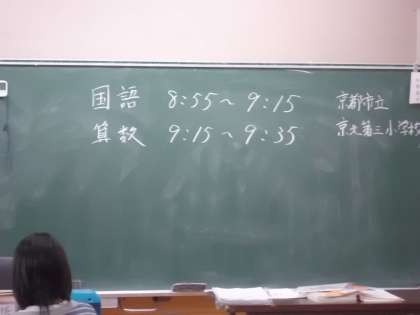 国語 8:55〜9:15 京都市立
算数 9:15〜9:35 京大第三小学校